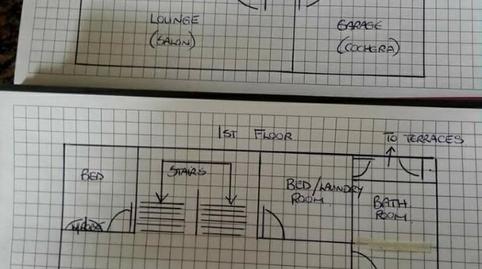 LOUNGE
(SALON)
GARAGE
(COCHERA)
1ST FLOOR
TO TERRACES
BED
STAIRS
BED/LAUNDRY
ROOM
BATH
ROOM